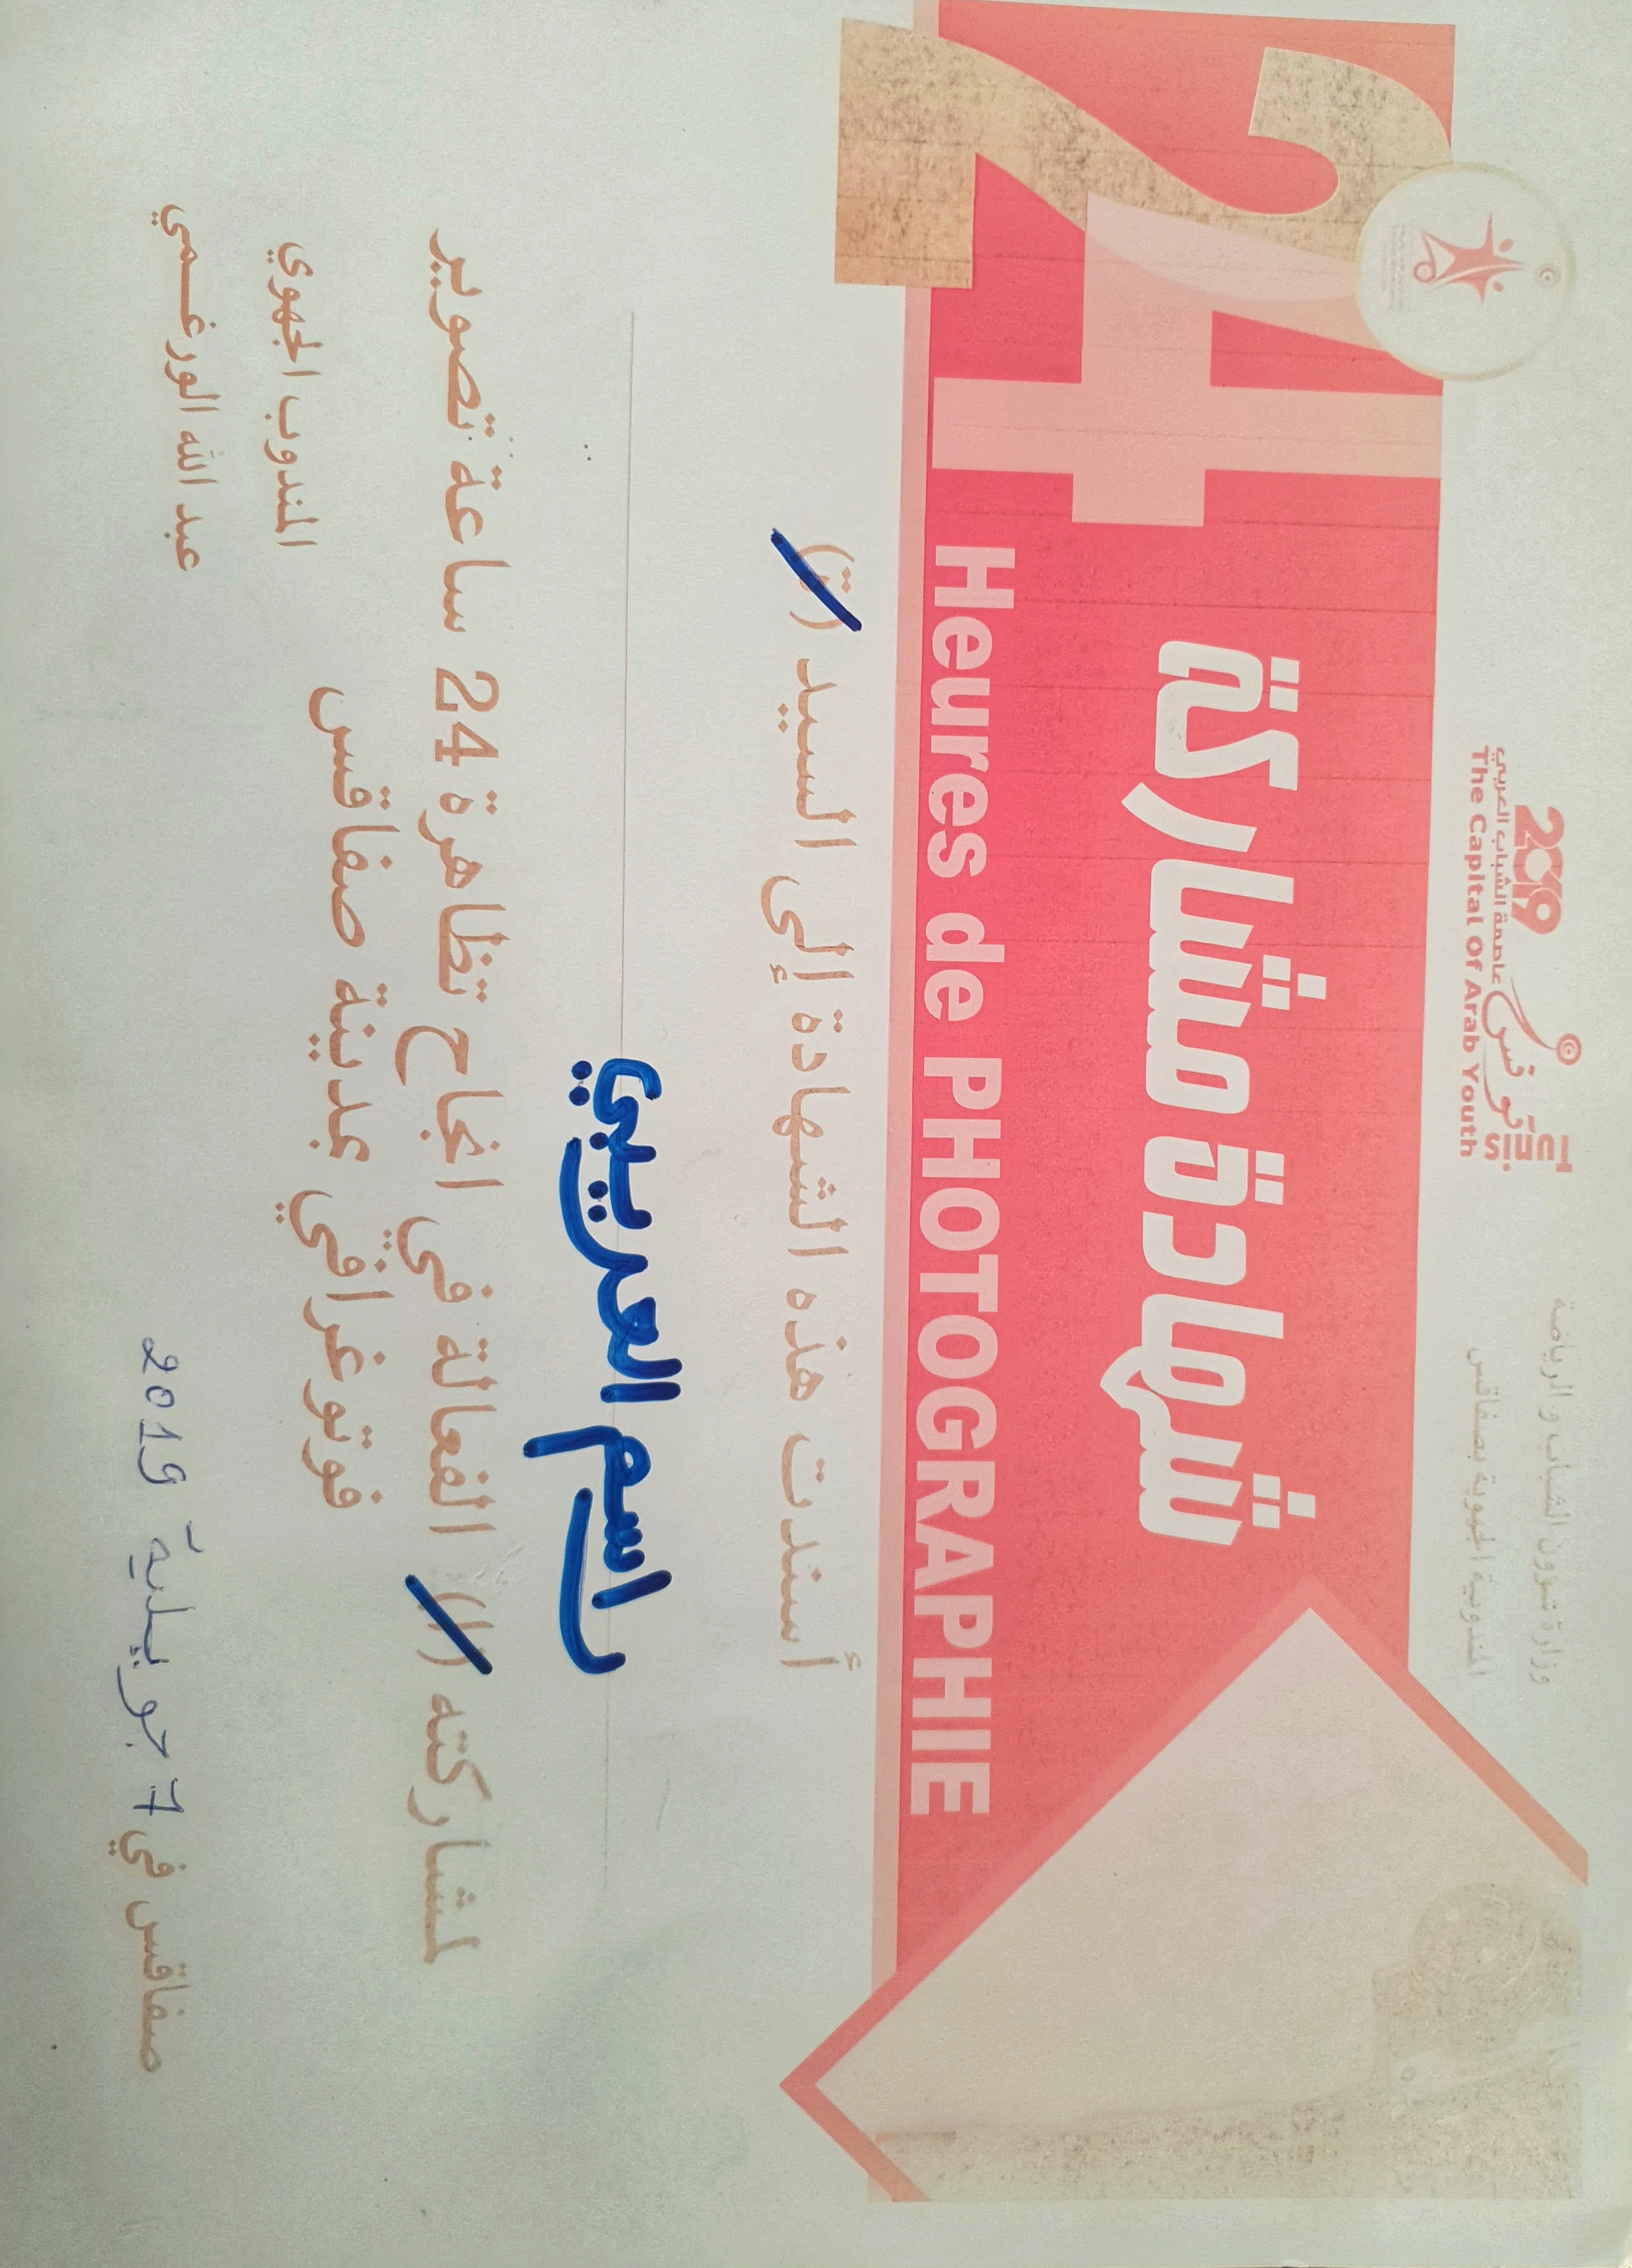 وزارة شؤون الشباب و الرياضة
المندوبية الجهوية بصفاقس
2019 تونس Tunis
عاصمة الشباب العربي
The Capital Of Arab Youth
شهادة مشاركة
24 Heures de PHOTOGRAPHIE
أسندت هذه الشهادة إلى السيد (ة)
راسم العريبي
لمشاركته (ا) الفعالة في انجاح تظاهرة 24 ساعة تصوير
فوتوغرافي بمدينة صفاقس
المندوب الجهوي
عبد الله الورغـــمي
صفاقس في 7 جويلية 2019